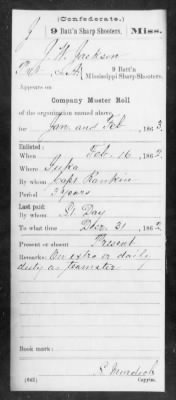 (Confederate.)
J 9 Batt'n Sharp Shooters, Miss.
J. W. Jackson
Pvt, Co. A, 9 Batt'n
Mississippi Sharp Shooters.
Appears on
Company Muster Roll
of the organization named above,
for Jan and Feb, 1863.
Enlisted:
When Feb. 16, 1862
Where Iuka
By whom Capt. Rankin
Period 3 years
Last paid:
By whom Lt. Day
To what time Dec. 31, 1862
Present or absent Present
Remarks: On extra or daily
duty as teamster
Book mark:
R. Murdoch
(642) Copyist.